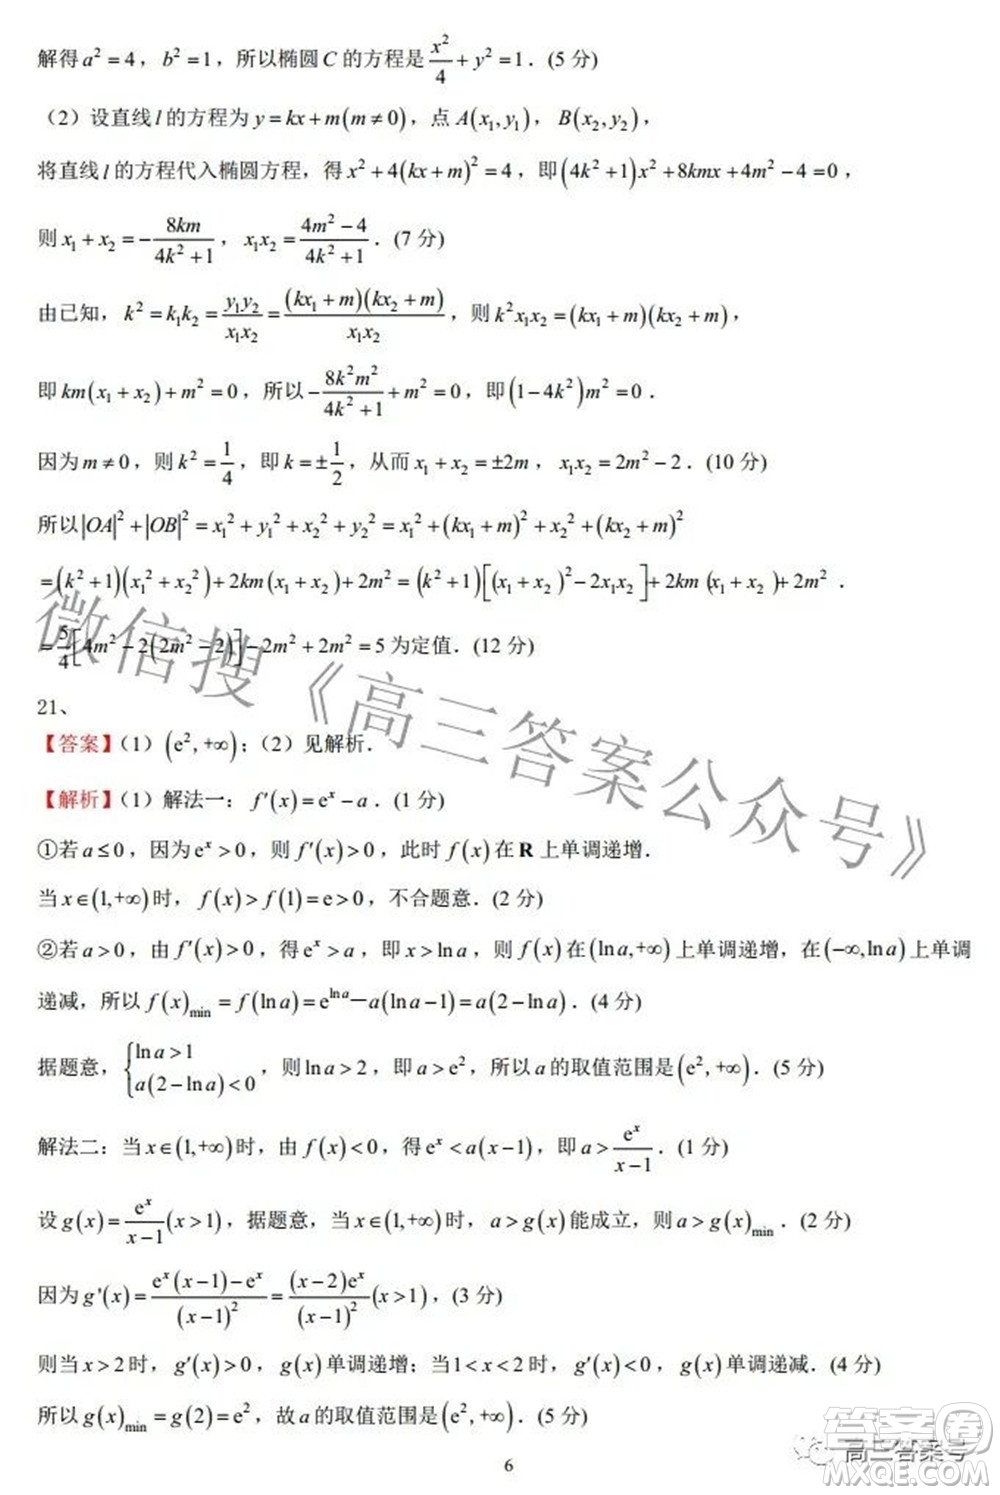 解得 a²=4，b²=1，所以椭圆 C 的方程是 x²/4+y²=1．(5 分)
（2）设直线 l 的方程为 y=kx+m(m≠0)，点 A(x₁,y₁)，B(x₂,y₂)，
将直线 l 的方程代入椭圆方程，得 x²+4(kx+m)²=4，即(4k²+1)x²+8kmx+4m²-4=0，
则 x₁+x₂=-8km/(4k²+1)，x₁x₂=(4m²-4)/(4k²+1)．(7 分)
由已知，k²=k₁k₂=y₁y₂/(x₁x₂)=(kx₁+m)(kx₂+m)/(x₁x₂)，则 k²x₁x₂=(kx₁+m)(kx₂+m)，
即 km(x₁+x₂)+m²=0，所以-8k²m²/(4k²+1)+m²=0，即(1-4k²)m²=0．
因为 m≠0，则 k²=1/4，即 k=±1/2，从而 x₁+x₂=±2m，x₁x₂=2m²-2．(10 分)
所以|OA|²+|OB|²=x₁²+y₁²+x₂²+y₂²=x₁²+(kx₁+m)²+x₂²+(kx₂+m)²
=(k²+1)(x₁²+x₂²)+2km(x₁+x₂)+2m²=(k²+1)[(x₁+x₂)²-2x₁x₂]+2km(x₁+x₂)+2m²．
=5/4[4m²-2(2m²-2)]-2m²+2m²=5 为定值．(12 分)
21、
【答案】（1）(e²,+∞)；（2）见解析．
【解析】（1）解法一：f′(x)=eˣ-a．(1 分)
①若 a≤0，因为 eˣ>0，则 f′(x)>0，此时 f(x)在 R 上单调递增．
当 x∈(1,+∞)时，f(x)>f(1)=e>0，不合题意．(2 分)
②若 a>0，由 f′(x)>0，得 eˣ>a，即 x>ln a，则 f(x)在(ln a,+∞)上单调递增，在(-∞,ln a)上单调
递减，所以 f(x)min=f(ln a)=e^(ln a)-a(ln a-1)=a(2-ln a)．(4 分)
据题意，{ln a>1 a(2-ln a)<0，则 ln a>2，即 a>e²，所以 a 的取值范围是(e²,+∞)．(5 分)
解法二：当 x∈(1,+∞)时，由 f(x)<0，得 eˣ<a(x-1)，即 a>eˣ/(x-1)．(1 分)
设 g(x)=eˣ/(x-1)(x>1)，据题意，当 x∈(1,+∞)时，a>g(x)能成立，则 a>g(x)min．(2 分)
因为 g'(x)=(eˣ(x-1)-eˣ)/(x-1)²=(x-2)eˣ/(x-1)²(x>1)，(3 分)
则当 x>2 时，g′(x)>0，g(x)单调递增；当 1<x<2 时，g′(x)<0，g(x)单调递减．(4 分)
所以 g(x)min=g(2)=e²，故 a 的取值范围是(e²,+∞)．(5 分)
6
微信搜《高三答案公众号》
高三答案号
答案圈
MXQE.COM